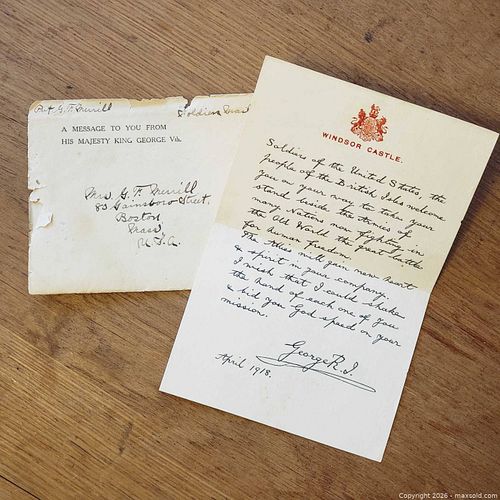 Pvt G. F. Merrill
Soldiers Mail
A MESSAGE TO YOU FROM
HIS MAJESTY KING GEORGE Vth.
Mrs. G. F. Merrill
83 Gainsboro Street,
Boston
Mass.
U.S.A.
WINDSOR CASTLE.
Soldiers of the United States, the
people of the British Isles welcome
you on your way to take your
stand beside the Armies of
many Nations now fighting in
the Old World the great battle
for human freedom.
The Allies will gain new heart
& spirit in your company.
I wish that I could shake
the hand of each one of you
& bid you God speed on your
mission.
George R.I.
April 1918.
Copyright 2026 - maxsold.com